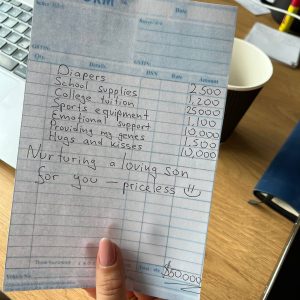 Date
GSTIN:
GSTIN:
Qty. Details HSN Rate Amount
Diapers 2500
School supplies 1,200
College tuition 25000
Sports equipment 1,100
Emotional support 10,000
Providing my genes 1,500
Hugs and kisses 10,000
Nurturing a loving son
for you — priceless
$50000